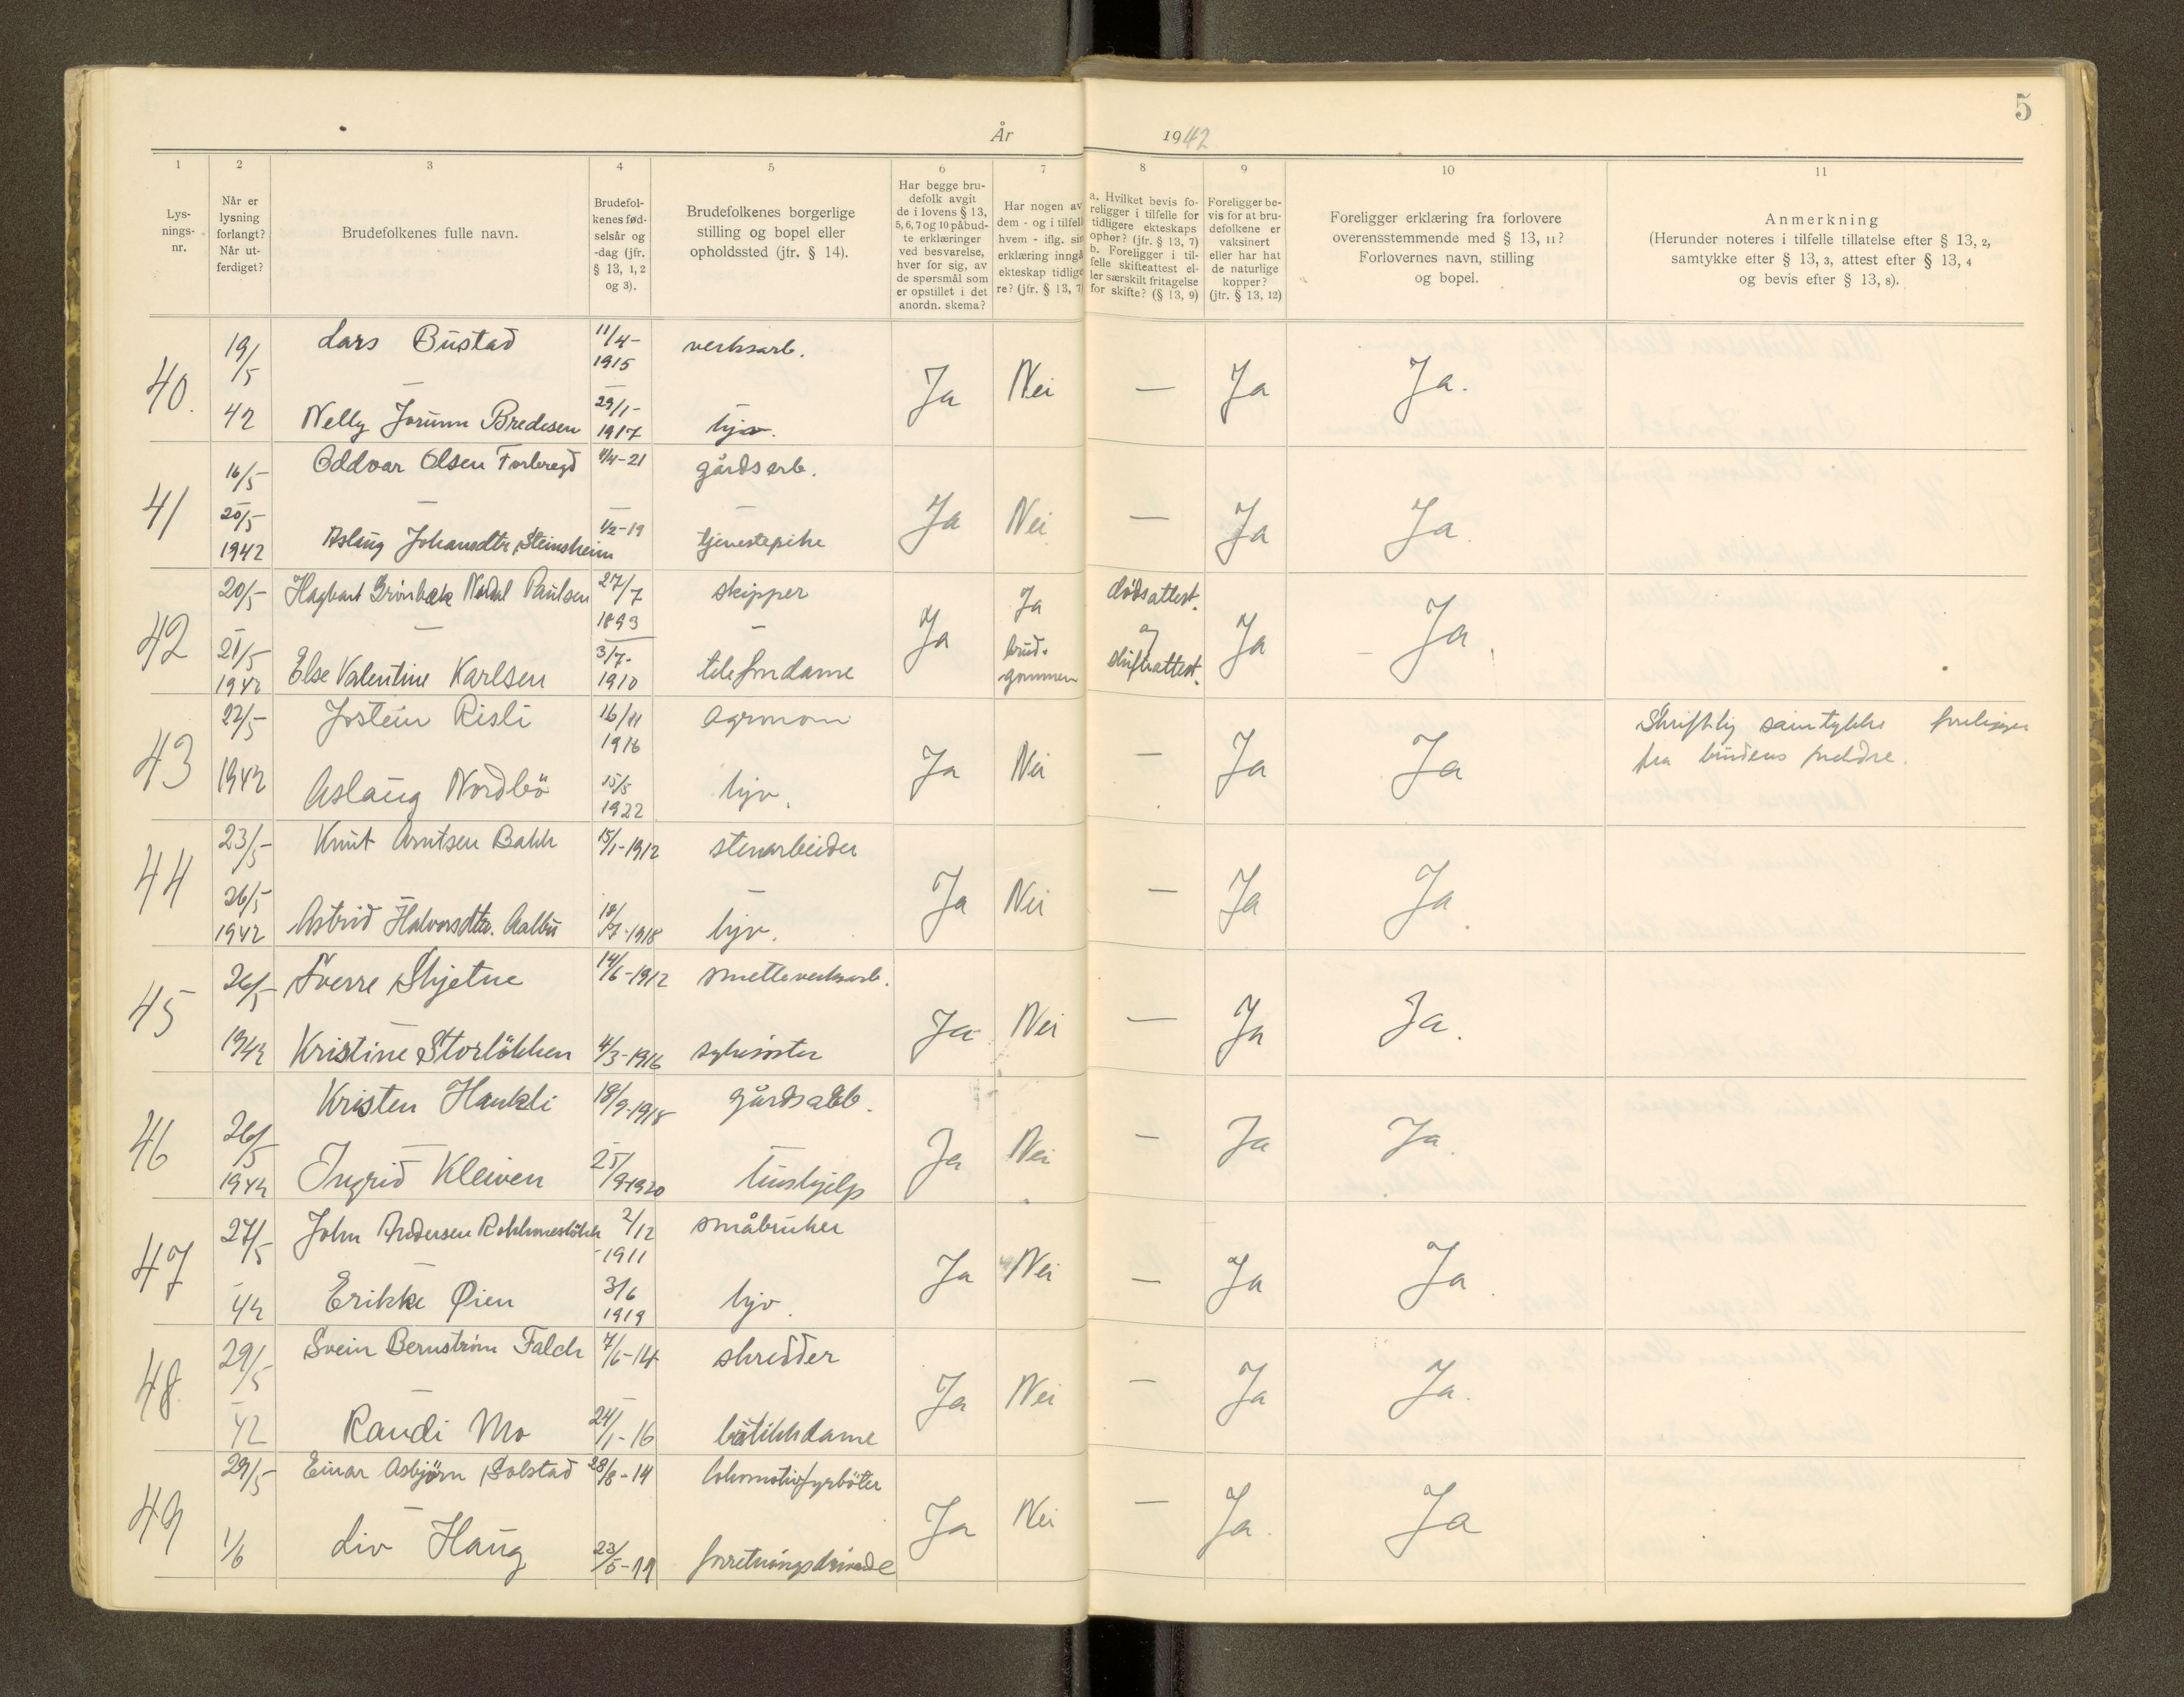 5
År 1942
1 2 3 4 5 6 7 8 9 10 11
Lys-
nings-
nr.
Når er
lysning
forlangt?
Når ut-
ferdiget?
Brudefolkenes fulle navn.
Brudefol-
kenes fød-
selsår og
-dag (jfr.
§ 13, 1, 2
og 3).
Brudefolkenes borgerlige
stilling og bopel eller
opholdssted (jfr. § 14).
Har begge bru-
defolk avgit
de i lovens § 13,
5, 6, 7 og 10 påbud-
te erklæringer
ved besvarelse,
hver for sig, av
de spørsmål som
er opstillet i det
anordn. skema?
Har nogen av
dem - og i tilfell
hvem - iflg. sin
erklæring inngå
ekteskap tidlige
re? (jfr. § 13, 7)
a. Hvilket bevis fo-
religger i tilfelle for
tidligere ekteskaps
ophør? (jfr. § 13, 7)
b. Foreligger i til-
felle skifteattest el-
ler særskilt fritagelse
for skifte? (§ 13, 9)
Foreligger be-
vis for at bru-
defolkene er
vaksinert
eller har hat
de naturlige
kopper?
(jfr. § 13, 12)
Foreligger erklæring fra forlovere
overensstemmende med § 13, 11?
Forlovernes navn, stilling
og bopel.
Anmerkning
(Herunder noteres i tilfelle tillatelse efter § 13, 2,
samtykke efter § 13, 3, attest efter § 13, 4
og bevis efter § 13, 8).
40. 19/5 Lars Bustad 11/4-1915 verksarb.
Ja Nei — Ja Ja.
42 Nelly Jorunn Bredesen 29/1-1917 hjv.
41 16/5- Oddvar Olsen Forbregd 4/4-21 gårdsarb.
20/5 Ja Nei — Ja Ja.
1942 Aslaug Johansdtr. Steinsheim 1/2-19 tjenestepike
42 20/5- Hagbart Grönbæk Nidal Paulsen 27/7 1893 skipper
Ja Ja brud-gommen dødsattest. og skifteattest. Ja Ja.
21/5 1942 Else Valentine Karlsen 3/7-1910 telefondame
43 22/5- Jostein Risli 16/11 1916 agronom
Skriftlig samtykke foreligger
fra brudens foreldre.
Ja Nei — Ja Ja
1942 Aslaug Nordbö 15/5 1922 hjv.
44 23/5- Knut Arntsen Bakk 15/1-1912 stenarbeider
26/5 Ja Nei — Ja Ja.
1942 Astrid Halvorsdtr. Aalbu 18/7-1918 hjv.
45 26/5- Sverre Skjetne 14/6-1912 smelteverksarb.
Ja Nei — Ja Ja.
1942 Kristine Storlökken 4/3-1916 sykesöster
46 Kristen Haukli 18/9-1918 gårdsarb.
26/5 Ja Nei — Ja Ja.
1942 Ingrid Kleiven 25/9-1920 hushjelp
47 27/5 John Andersen 2/12-1911 småbruker
Ja Nei — Ja Ja.
42 Erikke Øien 3/6 1919 hjv.
48 29/5 Svein Bernström Falch 7/6-14 skredder
Ja Nei — Ja Ja.
42 Randi Mo 24/1-16 butikkdame
49 29/5 Einar Asbjörn Solstad 28/8-14 lokomotivfyrböter
Ja Nei — Ja. Ja
1/6 Liv Haug 23/5-11 forretningsdrivende